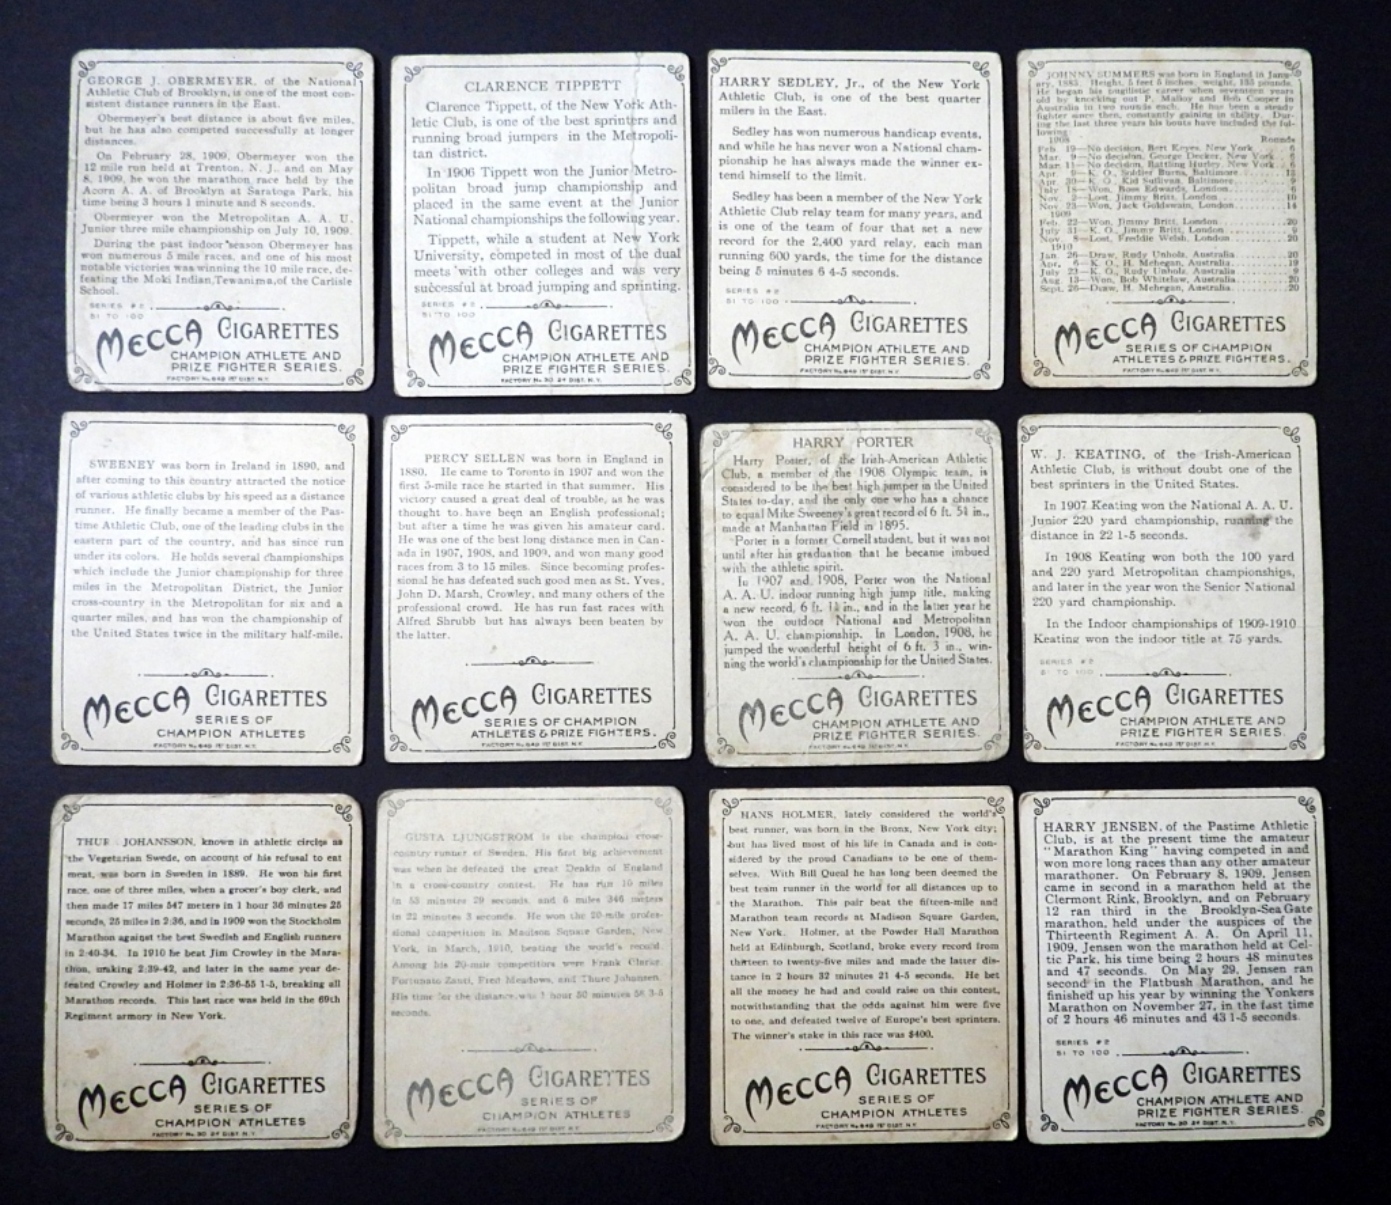 GEORGE J. OBERMEYER, of the National
Athletic Club of Brooklyn, is one of the most con-
sistent distance runners in the East.
Obermeyer's best distance is about five miles,
but he has also competed successfully at longer
distances.
On February 28, 1909, Obermeyer won the
12 mile run held at Trenton, N. J., and on May
8, 1909, he won the marathon race held by the
Acorn A. A. of Brooklyn at Saratoga Park, his
time being 3 hours 1 minute and 8 seconds.
Obermeyer won the Metropolitan A. A. U.
Junior three mile championship on July 10, 1909.
During the past indoor season Obermeyer has
won numerous 5 mile races, and one of his most
notable victories was winning the 10 mile race, de-
feating the Moki Indian, Tewanima, of the Carlisle
School.
SERIES #2
51 TO 100
MECCA CIGARETTES
CHAMPION ATHLETE AND
PRIZE FIGHTER SERIES.
FACTORY No. 649 1ST DIST. N.Y.
CLARENCE TIPPETT
Clarence Tippett, of the New York Ath-
letic Club, is one of the best sprinters and
running broad jumpers in the Metropoli-
tan district.
In 1906 Tippett won the Junior Metro-
politan broad jump championship and
placed in the same event at the Junior
National championships the following year.
Tippett, while a student at New York
University, competed in most of the dual
meets with other colleges and was very
successful at broad jumping and sprinting.
SERIES #2
51 TO 100
MECCA CIGARETTES
CHAMPION ATHLETE AND
PRIZE FIGHTER SERIES.
FACTORY No. 30 2d DIST. N.Y.
HARRY SEDLEY, Jr., of the New York
Athletic Club, is one of the best quarter
milers in the East.
Sedley has won numerous handicap events,
and while he has never won a National cham-
pionship he has always made the winner ex-
tend himself to the limit.
Sedley has been a member of the New York
Athletic Club relay team for many years, and
is one of the team of four that set a new
record for the 2,400 yard relay, each man
running 600 yards, the time for the distance
being 5 minutes 6 4-5 seconds.
SERIES #2
51 TO 100
MECCA CIGARETTES
CHAMPION ATHLETE AND
PRIZE FIGHTER SERIES.
FACTORY No. 649 1ST DIST. N.Y.
JOHNNY SUMMERS was born in England in Janu-
ary, 1883. Height, 5 feet 5 inches, weight, 135 pounds.
He began his pugilistic career when seventeen years
old by knocking out P. Malloy and Bob Cooper in
Australia in two rounds each. He has been a steady
fighter since then, constantly gaining in ability. Dur-
ing the last three years his bouts have included the fol-
lowing:
1908 Rounds
Feb. 19—No decision, Bert Keyes, New York 6
Mar. 9—No decision, George Decker, New York 6
Mar. 11—No decision, Battling Hurley, New York 6
Apr. 9—K. O., Soldier Burns, Baltimore
Apr. 30—K. O., Kid Sullivan, Baltimore
July 18—Won, Ross Edwards, London 6
Nov. 2—Lost, Jimmy Britt, London 10
Nov. 23—Won, Jack Goldswain, London 14
1909
Feb. 22—Won, Jimmy Britt, London 20
July 31—K. O., Jimmy Britt, London 9
Nov. 8—Lost, Freddie Welsh, London 20
1910
Jan. 26—Draw, Rudy Unholz, Australia 20
Apr. 6—K. O., H. Mehegan, Australia 19
July 23—K. O., Rudy Unholz, Australia 9
Aug. 13—Won, Bob Whitelaw, Australia 20
Sept. 26—Draw, H. Mehegan, Australia 20
MECCA CIGARETTES
SERIES OF CHAMPION
ATHLETES & PRIZE FIGHTERS.
FACTORY No. 649 1ST DIST. N.Y.
SWEENEY was born in Ireland in 1890, and
after coming to this country attracted the notice
of various athletic clubs by his speed as a distance
runner. He finally became a member of the Pas-
time Athletic Club, one of the leading clubs in the
eastern part of the country, and has since run
under its colors. He holds several championships
which include the Junior championship for three
miles in the Metropolitan District, the Junior
cross-country in the Metropolitan for six and a
quarter miles, and has won the championship of
the United States twice in the military half-mile.
MECCA CIGARETTES
SERIES OF
CHAMPION ATHLETES
FACTORY No. 649 1ST DIST. N.Y.
PERCY SELLEN was born in England in
1880. He came to Toronto in 1907 and won the
first 5-mile race he started in that summer. His
victory caused a great deal of trouble, as he was
thought to have been an English professional;
but after a time he was given his amateur card.
He was one of the best long distance men in Can-
ada in 1907, 1908, and 1909, and won many good
races from 3 to 15 miles. Since becoming profes-
sional he has defeated such good men as St. Yves,
John D. Marsh, Crowley, and many others of the
professional crowd. He has run fast races with
Alfred Shrubb but has always been beaten by
the latter.
MECCA CIGARETTES
SERIES OF CHAMPION
ATHLETES & PRIZE FIGHTERS.
FACTORY No. 649 1ST DIST. N.Y.
HARRY PORTER
Harry Porter, of the Irish-American Athletic
Club, a member of the 1908 Olympic team, is
considered to be the best high jumper in the United
States to-day, and the only one who has a chance
to equal Mike Sweeney's great record of 6 ft. 5⅝ in.,
made at Manhattan Field in 1895.
Porter is a former Cornell student, but it was not
until after his graduation that he became imbued
with the athletic spirit.
In 1907 and 1908, Porter won the National
A. A. U. indoor running high jump title, making
a new record, 6 ft. 1¾ in., and in the latter year he
won the outdoor National and Metropolitan
A. A. U. championship. In London, 1908, he
jumped the wonderful height of 6 ft. 3 in., win-
ning the world's championship for the United States.
MECCA CIGARETTES
CHAMPION ATHLETE AND
PRIZE FIGHTER SERIES.
FACTORY No. 649 1ST DIST. N.Y.
W. J. KEATING, of the Irish-American
Athletic Club, is without doubt one of the
best sprinters in the United States.
In 1907 Keating won the National A. A. U.
Junior 220 yard championship, running the
distance in 22 1-5 seconds.
In 1908 Keating won both the 100 yard
and 220 yard Metropolitan championships,
and later in the year won the Senior National
220 yard championship.
In the Indoor championships of 1909-1910
Keating won the indoor title at 75 yards.
SERIES #2
51 TO 100
MECCA CIGARETTES
CHAMPION ATHLETE AND
PRIZE FIGHTER SERIES.
FACTORY No. 649 1ST DIST. N.Y.
THURE JOHANSSON, known in athletic circles as
the Vegetarian Swede, on account of his refusal to eat
meat, was born in Sweden in 1889. He won his first
race, one of three miles, when a grocer's boy clerk, and
then made 17 miles 547 meters in 1 hour 36 minutes 25
seconds, 25 miles in 2:36, and in 1909 won the Stockholm
Marathon against the best Swedish and English runners
in 2:40-34. In 1910 he beat Jim Crowley in the Mara-
thon, making 2:39-42, and later in the same year de-
feated Crowley and Holmer in 2:36-55 1-5, breaking all
Marathon records. This last race was held in the 69th
Regiment armory in New York.
MECCA CIGARETTES
SERIES OF
CHAMPION ATHLETES
FACTORY No. 30 2d DIST. N.Y.
GUSTA LJUNGSTROM is the champion cross-
country runner of Sweden. His first big achievement
was when he defeated the great Deakin of England
in a cross-country contest. He has run 10 miles
in 53 minutes 29 seconds, and 6 miles 346 meters
in 22 minutes 3 seconds. He won the 20-mile profes-
sional competition in Madison Square Garden, New
York, in March, 1910, beating the world's record.
Among his 20-mile competitors were Frank Clarke,
Fortunato Zanti, Fred Meadows, and Thure Johansen.
His time for the distance was 1 hour 50 minutes 58 3-5
seconds.
MECCA CIGARETTES
SERIES OF
CHAMPION ATHLETES
FACTORY No. 649 1ST DIST. N.Y.
HANS HOLMER, lately considered the world's
best runner, was born in the Bronx, New York city;
but has lived most of his life in Canada and is con-
sidered by the proud Canadians to be one of them-
selves. With Bill Queal he has long been deemed the
best team runner in the world for all distances up to
the Marathon. This pair beat the fifteen-mile and
Marathon team records at Madison Square Garden,
New York. Holmer, at the Powder Hall Marathon
held at Edinburgh, Scotland, broke every record from
thirteen to twenty-five miles and made the latter dis-
tance in 2 hours 32 minutes 21 4-5 seconds. He bet
all the money he had and could raise on this contest,
notwithstanding that the odds against him were five
to one, and defeated twelve of Europe's best sprinters.
The winner's stake in this race was $400.
MECCA CIGARETTES
SERIES OF
CHAMPION ATHLETES
FACTORY No. 649 1ST DIST. N.Y.
HARRY JENSEN, of the Pastime Athletic
Club, is at the present time the amateur
"Marathon King" having competed in and
won more long races than any other amateur
marathoner. On February 8, 1909, Jensen
came in second in a marathon held at the
Clermont Rink, Brooklyn, and on February
12 ran third in the Brooklyn-Sea Gate
marathon, held under the auspices of the
Thirteenth Regiment A. A. On April 11,
1909, Jensen won the marathon held at Cel-
tic Park, his time being 2 hours 48 minutes
and 47 seconds. On May 29, Jensen ran
second in the Flatbush Marathon, and he
finished up his year by winning the Yonkers
Marathon on November 27, in the fast time
of 2 hours 46 minutes and 43 1-5 seconds.
SERIES #2
51 TO 100
MECCA CIGARETTES
CHAMPION ATHLETE AND
PRIZE FIGHTER SERIES.
FACTORY No. 30 2d DIST. N.Y.